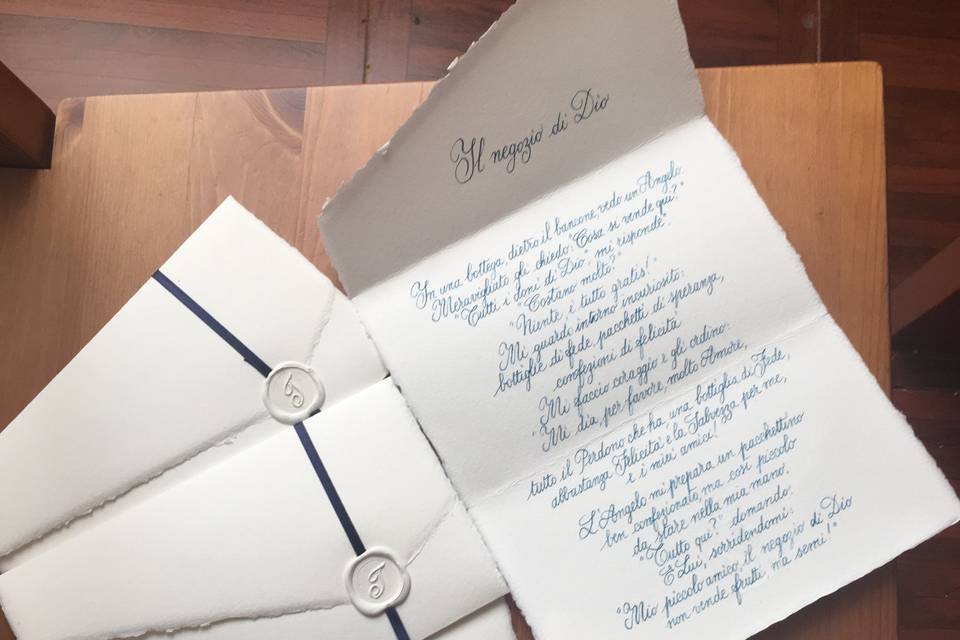 Il negozio di Dio
In una bottega, dietro il bancone, vedo un Angelo.
Meravigliato gli chiedo: "Cosa si vende qui?"
"Tutti i doni di Dio", mi risponde.
"Costano molto?"
"Niente, è tutto gratis!"
Mi guardo intorno incuriosito:
bottiglie di fede, pacchetti di speranza,
confezioni di felicità
Mi faccio coraggio e gli ordino:
"Mi dia, per favore molto Amore,
tutto il Perdono che ha, una bottiglia di Fede,
abbastanza Felicità e la Salvezza per me,
e i miei amici!
L'Angelo mi prepara un pacchettino
ben confezionato, ma così piccolo
da stare nella mia mano.
"Tutto qui?" domando.
E Lui, sorridendomi:
"Mio piccolo amico, il negozio di Dio
non vende frutti, ma semi!"
T
T